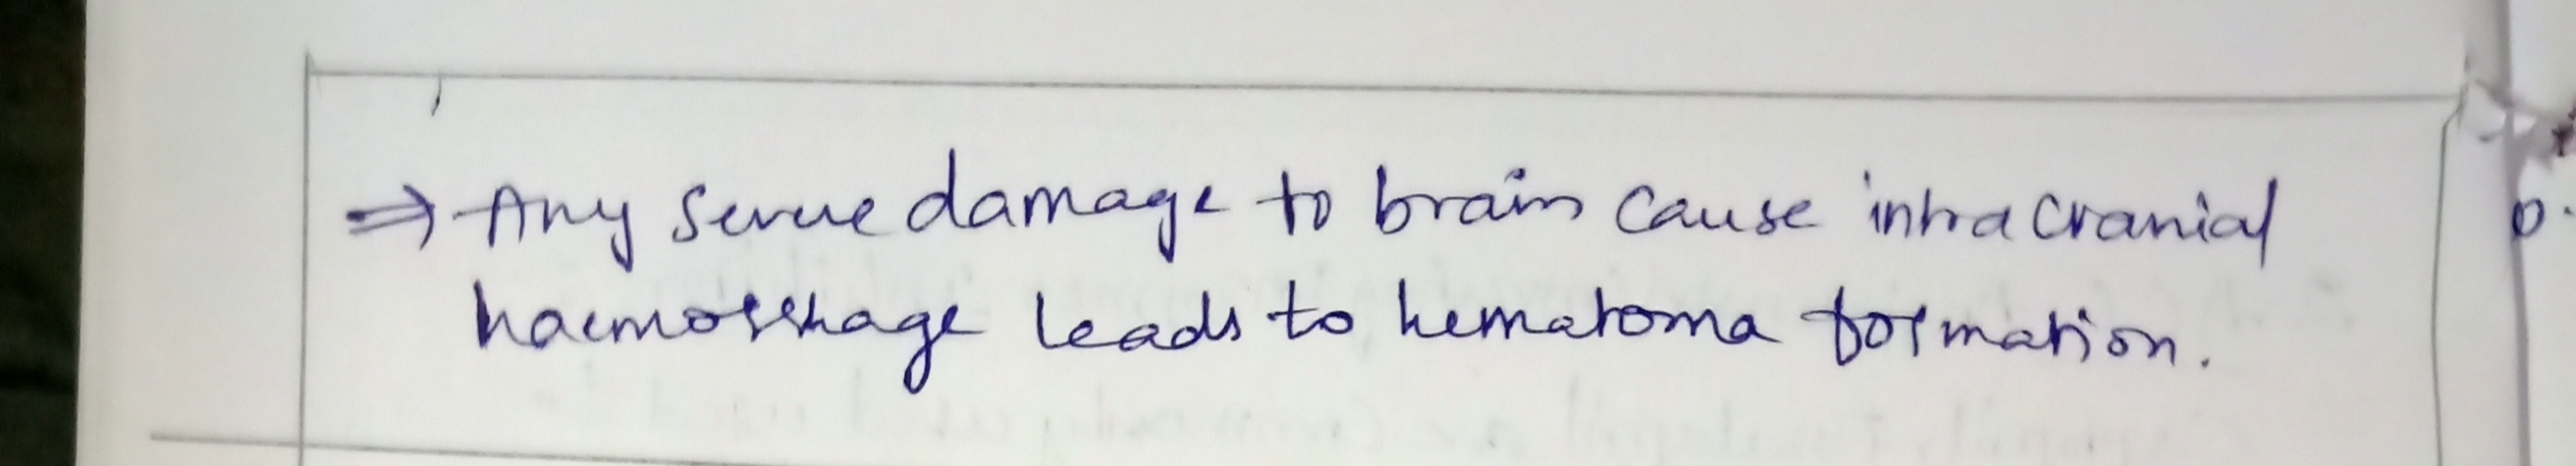 ⇒ Any severe damage to brain cause intracranial
haemorrhage leads to hematoma formation.